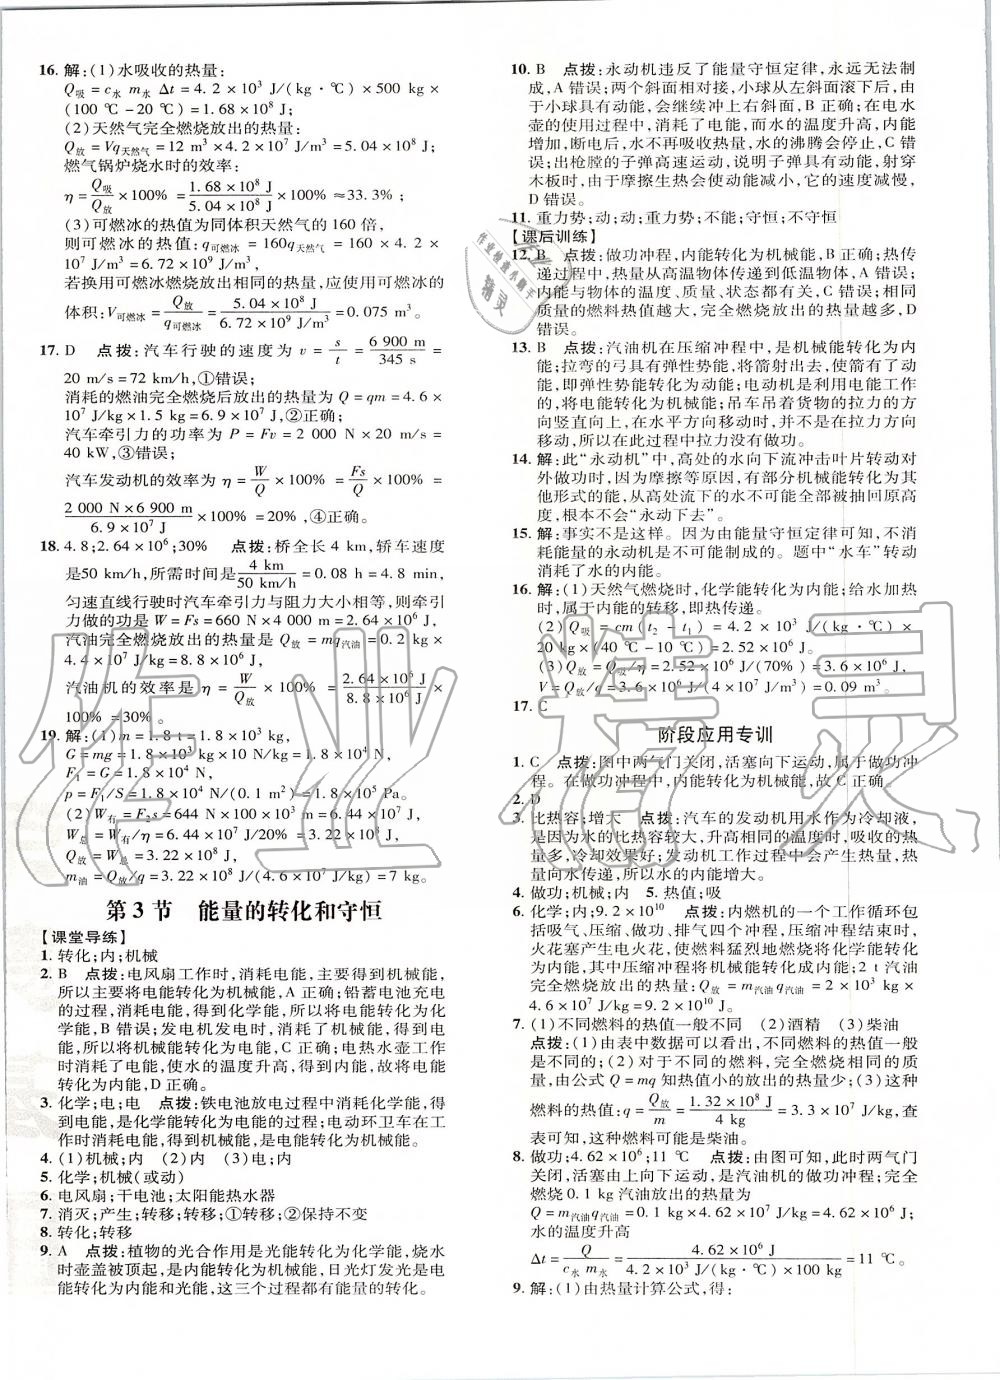 16. 解:(1)水吸收的热量:
Q吸=c水 m水 Δt=4.2×10³ J/(kg·℃)×500 kg×
(100 ℃-20 ℃)=1.68×10⁸ J;
(2)天然气完全燃烧放出的热量:
Q放=Vq天然气=12 m³×4.2×10⁷ J/m³=5.04×10⁸ J;
燃气锅炉烧水时的效率:
η=Q吸/Q放×100%=1.68×10⁸ J/5.04×10⁸ J×100%≈33.3%;
(3)可燃冰的热值为同体积天然气的 160 倍,
则可燃冰的热值:q可燃冰=160q天然气=160×4.2×
10⁷ J/m³=6.72×10⁹ J/m³;
若换用可燃冰燃烧放出相同的热量,应使用可燃冰的
体积:V可燃冰=Q放/q可燃冰=5.04×10⁸ J/6.72×10⁹ J/m³=0.075 m³。
17. D 点拨:汽车行驶的速度为 v=s/t=6 900 m/345 s=
20 m/s=72 km/h,①错误;
消耗的燃油完全燃烧后放出的热量为 Q=qm=4.6×
10⁷ J/kg×1.5 kg=6.9×10⁷ J,②正确;
汽车牵引力的功率为 P=Fv=2 000 N×20 m/s=
40 kW,③错误;
汽车发动机的效率为 η=W/Q×100%=Fs/Q×100%=
2 000 N×6 900 m/6.9×10⁷ J×100%=20%,④正确。
18. 4.8;2.64×10⁶;30% 点拨:桥全长 4 km,轿车速度
是50 km/h,所需时间是4 km/50 km/h=0.08 h=4.8 min,
匀速直线行驶时汽车牵引力与阻力大小相等,则牵引
力做的功为 W=Fs=660 N×4 000 m=2.64×10⁶ J,
汽油完全燃烧放出的热量是 Q放=mq汽油=0.2 kg×
4.4×10⁷ J/kg=8.8×10⁶ J,
汽油机的效率是 η=W/Q放×100%=2.64×10⁶ J/8.8×10⁶ J×
100%=30%。
19. 解:(1)m=1.8 t=1.8×10³ kg,
G=mg=1.8×10³ kg×10 N/kg=1.8×10⁴ N,
F₁=G=1.8×10⁴ N,
p=F₁/S=1.8×10⁴ N/(0.1 m²)=1.8×10⁵ Pa。
(2)W有=F₂s=644 N×100×10³ m=6.44×10⁷ J,
W总=W有/η=6.44×10⁷ J/20%=3.22×10⁸ J,
Q放=W总=3.22×10⁸ J,
m油=Q放/q=3.22×10⁸ J/(4.6×10⁷ J/kg)=7 kg。
第 3 节 能量的转化和守恒
【课堂导练】
1. 转化;内;机械
2. B 点拨:电风扇工作时,消耗电能,主要得到机械能,
所以主要将电能转化为机械能,A 正确;铅蓄电池充电
的过程,消耗电能,得到化学能,所以将电能转化为化
学能,B 错误;发电机发电时,消耗了机械能,得到电
能,所以将机械能转化为电能,C 正确;电热水壶工作
时消耗了电能,使水的温度升高,得到内能,故将电能
转化为内能,D 正确。
3. 化学;电;电 点拨:铁电池放电过程中消耗化学能,得
到电能,是化学能转化为电能的过程;电动环卫车在工
作时消耗电能,得到机械能,是电能转化为机械能。
4. (1)机械;内 (2)内 (3)电;内
5. 化学;机械(或动)
6. 电风扇;干电池;太阳能热水器
7. 消灭;产生;转移;转移;①转移;②保持不变
8. 转化;转移
9. A 点拨:植物的光合作用是光能转化为化学能,烧水
时壶盖被顶起,是内能转化为机械能,日光灯发光是电能
转化为内能和光能,这三个过程都有能量的转化。
10. B 点拨:永动机违反了能量守恒定律,永远无法制
成,A 错误;两个斜面相对接,小球从左斜面滚下后,由
于小球具有动能,会继续冲上右斜面,B 正确;在电水
壶的使用过程中,消耗了电能,而水的温度升高,内能
增加,断电后,水不再吸收热量,水的沸腾会停止,C 错
误;出枪膛的子弹高速运动,说明子弹有动能,射穿
木板时,由于摩擦生热会使动能减小,它的速度减慢,
D 错误。
11. 重力势;动;动;重力势;不能;守恒;不守恒
【课后训练】
12. B 点拨:做功冲程,内能转化为机械能,B 正确;热传
递过程中,热量从高温物体传递到低温物体,A 错误;
内能与物体的温度、质量、状态都有关,C 错误;相同
质量的燃料热值越大,完全燃烧放出的热量越多,D
错误。
13. B 点拨:汽油机在压缩冲程中,是机械能转化为内
能;拉弯的弓具有弹性势能,将箭射出去,使箭有了动
能,即弹性势能转化为动能;电动机是利用电能工作
的,将电能转化为机械能;吊车吊着货物的拉力的方
向竖直向上,在水平方向移动时,并不是在拉力方向
移动,所以在此过程中拉力没有做功。
14. 解:此“永动机”中,高处的水向下流冲击叶片转动对
外做功时,因为摩擦等原因,有部分机械能转化为其
他形式的能,从高处流下的水不可能全部被抽回原高
度,根本不会“永动下去”。
15. 解:事实不是这样。因为由能量守恒定律可知,不消
耗能量的永动机是不可能制成的。题中“水车”转动
消耗了水的内能。
16. 解:(1)天然气燃烧时,化学能转化为内能;给水加热
时,属于内能的转移,即热传递。
(2)Q吸=cm(t₂-t₁)=4.2×10³ J/(kg·℃)×
20 kg×(40 ℃-10 ℃)=2.52×10⁶ J。
(3)Q放=Q吸/η=2.52×10⁶ J/(70%)=3.6×10⁶ J,
V=Q放/q=3.6×10⁶ J/(4×10⁷ J/m³)=0.09 m³。
17. C
阶段应用专训
1. C 点拨:图中两气门关闭,活塞向下运动,属于做功冲
程。在做功冲程中,内能转化为机械能,故 C 正确。
2. D
3. 比热容;增大 点拨:汽车的发动机用水作为冷却液,
是因为水的比热容较大,升高相同的温度时,吸收的热
量多,冷却效果好;发动机工作过程中会产生热量,热
量向水传递,所以水的内能增大。
4. 做功;机械;内 5. 热值;吸
6. 化学;内;9.2×10¹⁰ 点拨:内燃机的一个工作循环包
括吸气、压缩、做功、排气四个冲程,压缩冲程结束时,
火花塞产生电火花,使燃料猛烈地燃烧将化学能转化
为内能,其中压缩冲程将机械能转化成内能;2 t 汽油
完全燃烧放出的热量:Q放=m汽油q汽油=2×10³ kg×
4.6×10⁷ J/kg=9.2×10¹⁰ J。
7. (1)不同燃料的热值一般不同 (2)酒精 (3)柴油
点拨:(1)由表中数据可以看出,不同燃料的热值一般
是不同的;(2)对于不同的燃料,完全燃烧相同的质
量,由公式 Q=mq 知热值小的放出的热量少;(3)这种
燃料的热值:q=Q放/m=1.32×10⁸ J/4 kg=3.3×10⁷ J/kg,查
表可知,这种燃料可能是柴油。
8. 做功;4.62×10⁶;11 ℃ 点拨:由图可知,此时两气门
关闭,活塞由上向下运动,是汽油机的做功冲程;完全
燃烧 0.1 kg 汽油放出的热量为
Q=m汽油q汽油=0.1 kg×4.62×10⁷ J/kg=4.62×10⁶ J;
水的温度升高
Δt=Q/c水 m水=4.62×10⁶ J/4.2×10³ J/(kg·℃)×100 kg=11 ℃。
9. 解:(1)由热量计算公式,得: